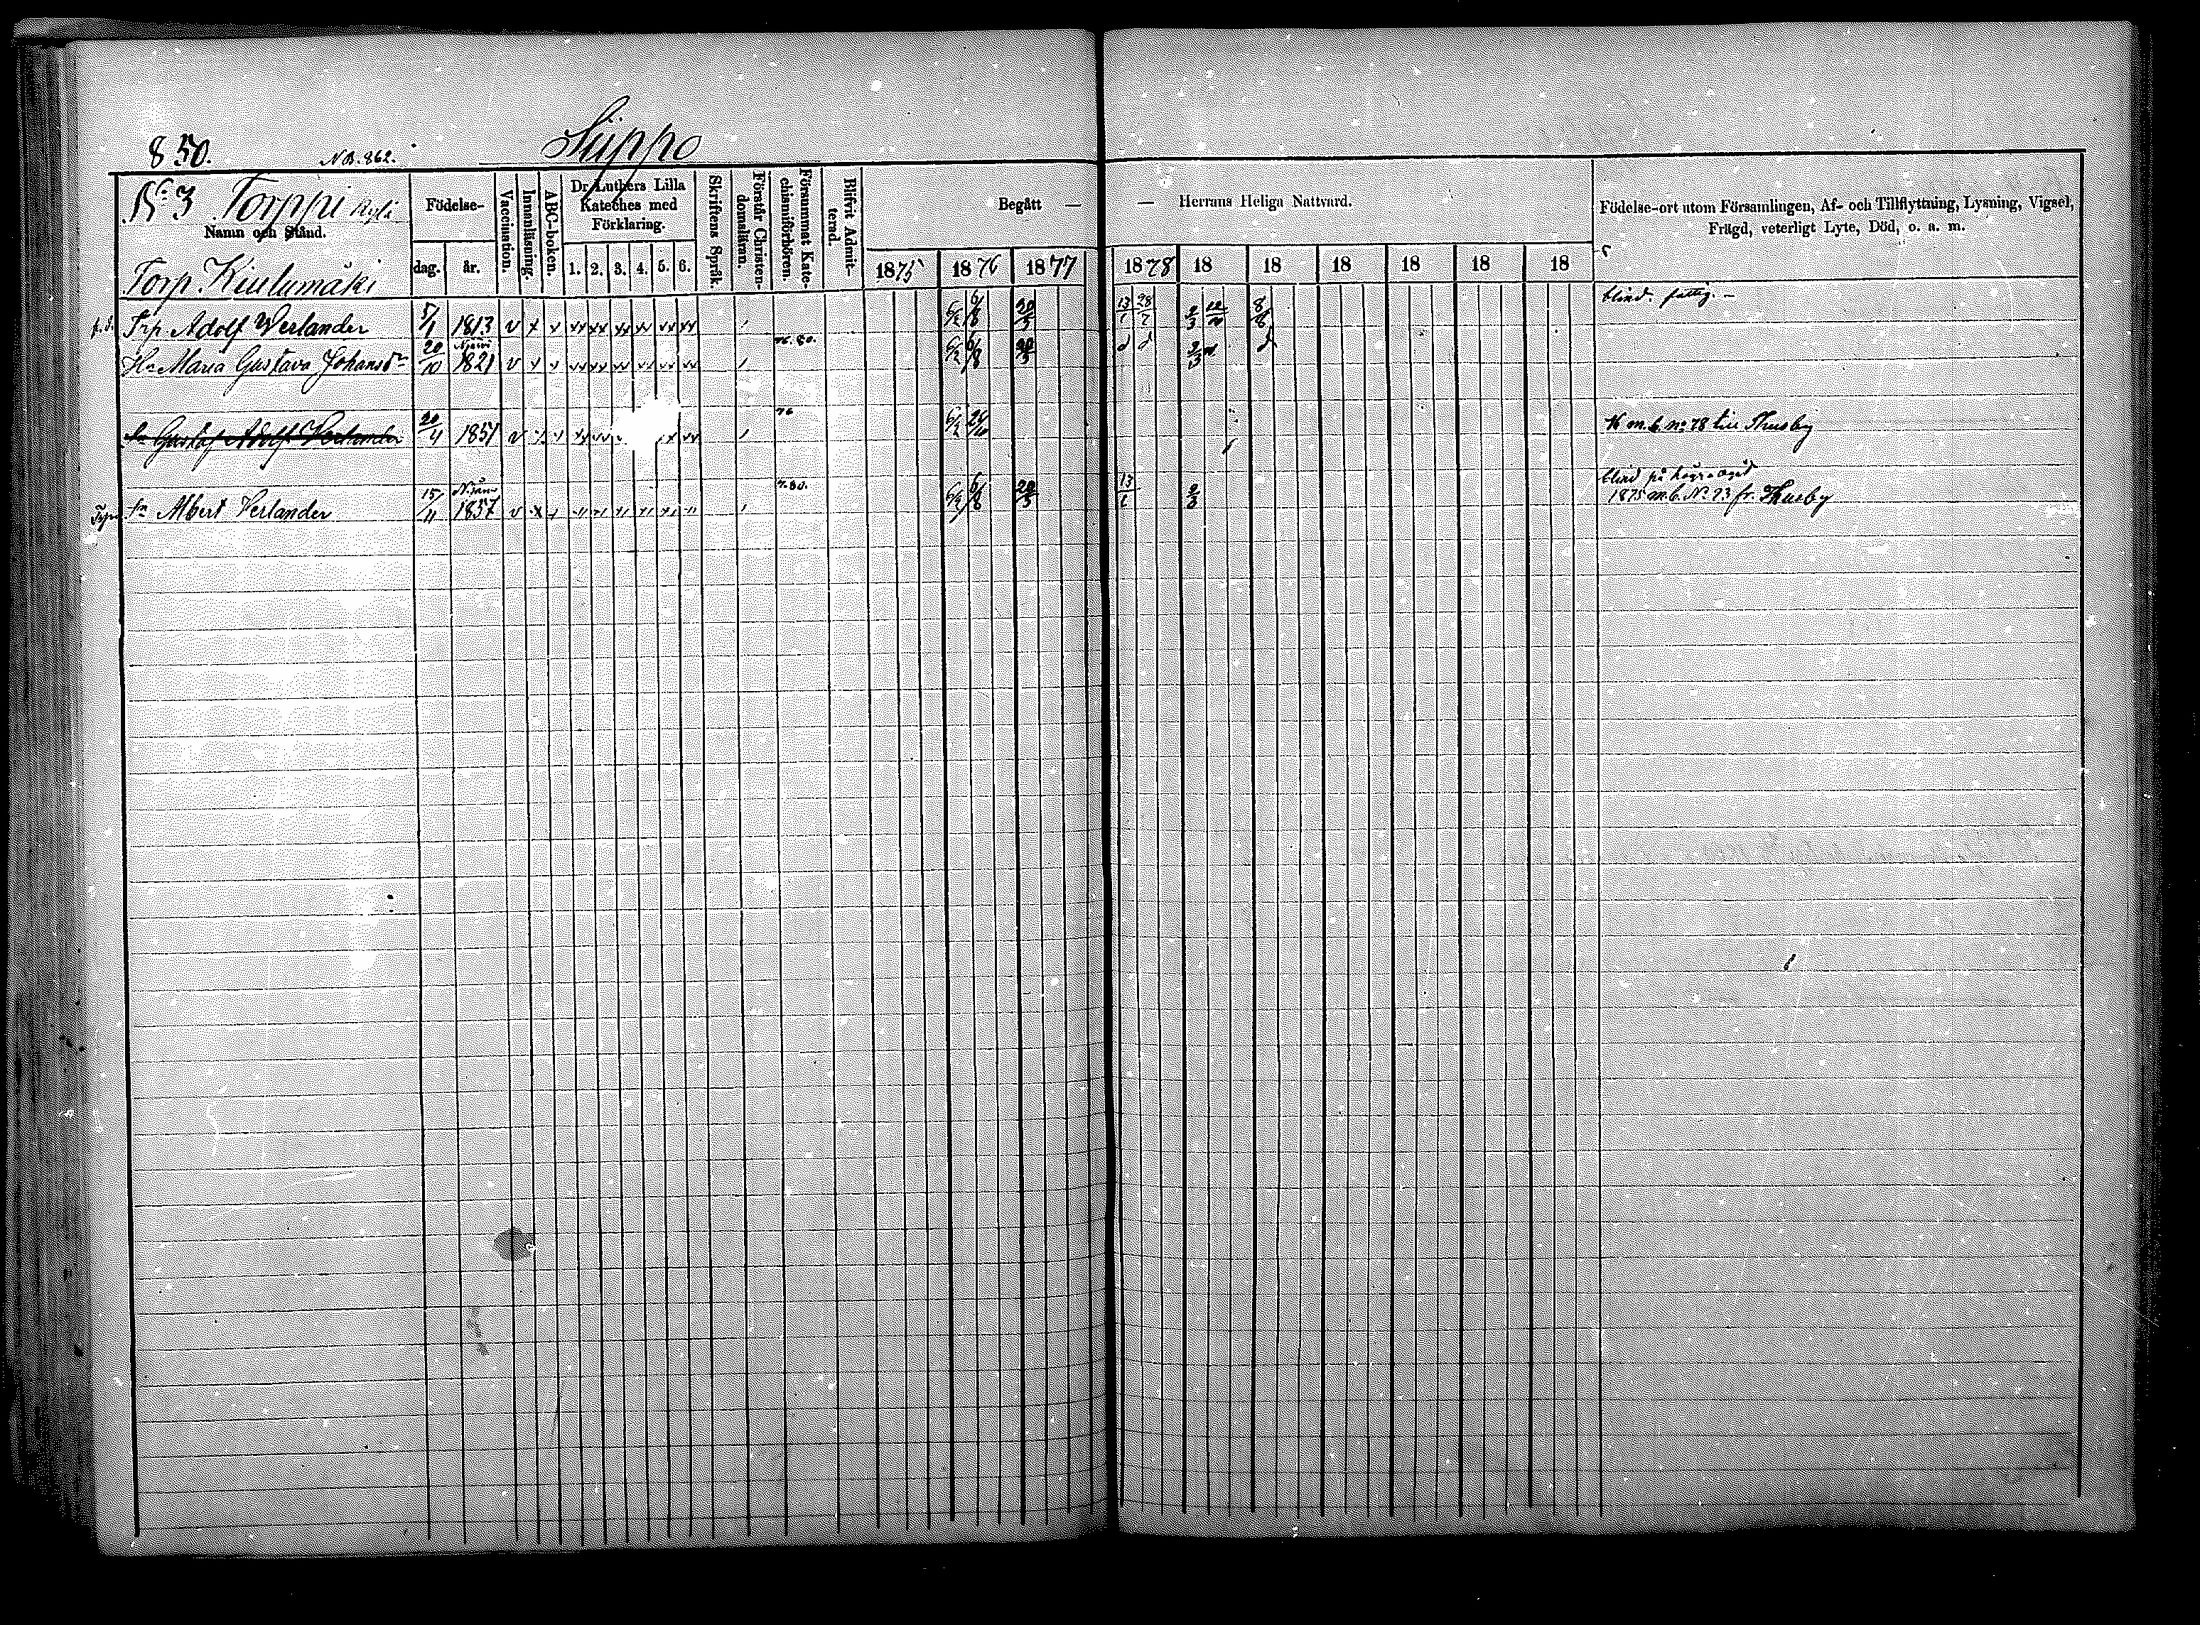 850. N.B. 862. Siippo
№ 3 Torppi Kylä
Namn och Stånd.
Födelse-
dag. år.
Vaccination.
Innanläsning.
ABC-boken.
Dr Luthers Lilla
Kateches med
Förklaring.
1. 2. 3. 4. 5. 6.
Skriftens Språk.
Förstår Christen-
domsläran.
Försummat Kate-
chismiförhören.
Blifvit Admit-
terad.
Begått — — Herrans Heliga Nattvard.
1875 1876 1877 1878 18 18 18 18 18 18
Födelse-ort utom Församlingen, Af- och Tillflyttning, Lysning, Vigsel,
Frägd, veterligt Lyte, Död, o. a. m.
Torp Kiulumäki
f.d. Trp Adolf Werlander 5/1 1813 v x x 6/2 6/8 20/5 13/1 28/7 2/3 8/8 blind. fattig. —
Hu Maria Gustava Johansdr 20/10 1821 v x x 76. 80. 6/2 6/8 20/5 2/3
Sn Gustaf Adolf Verlander 20/4 1851 v x x 76 6/2 76 m.b. no 78 till Thusby
Sn Albert Verlander 15/11 1857 v x x 7. 80. 6/2 6/8 20/5 13/1 2/3 blind på högra ögat
1875 m.b. No 23 fr. Thusby